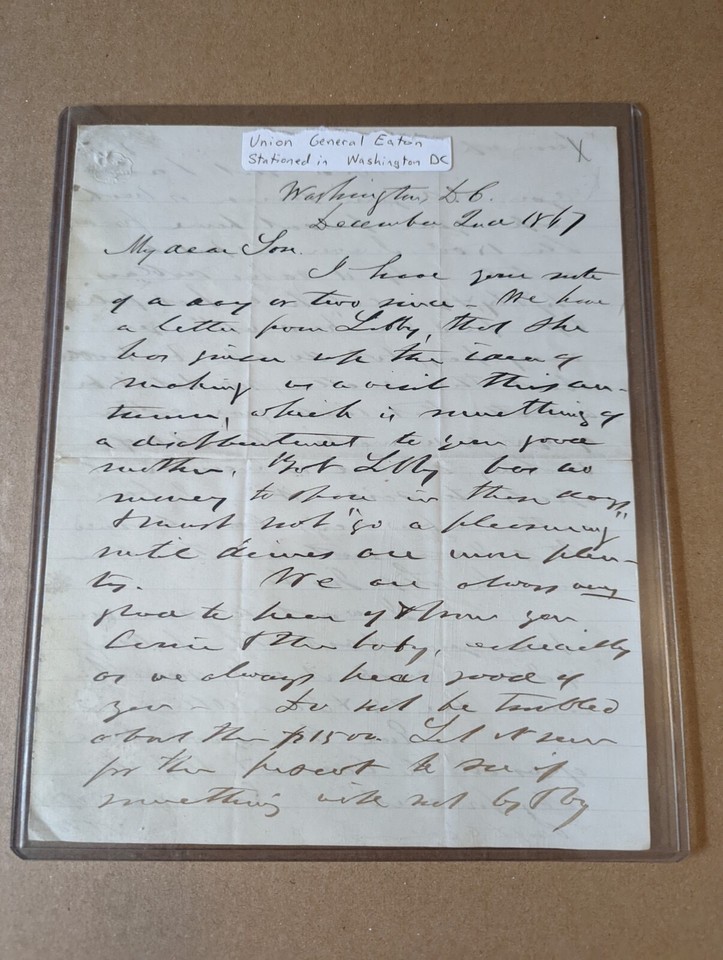 Union General Eaton
Stationed in Washington DC
X
Washington, D.C.
December 2nd 1867
My dear Son.
I have your note
of a day or two since - We have
a letter from Libby, that she
has given up the idea of
making us a visit this au-
tumn, which is something of
a disappointment to your good
mother. But Libby has no
money to spare in these days,
& must not "go a pleasuring"
until dimes are more plen-
ty. We are always very
glad to hear of & from you
& the baby, especially
as we always hear good of
you - Do not be troubled
about the $1500 Let it
for the present & see if
something will not by & by